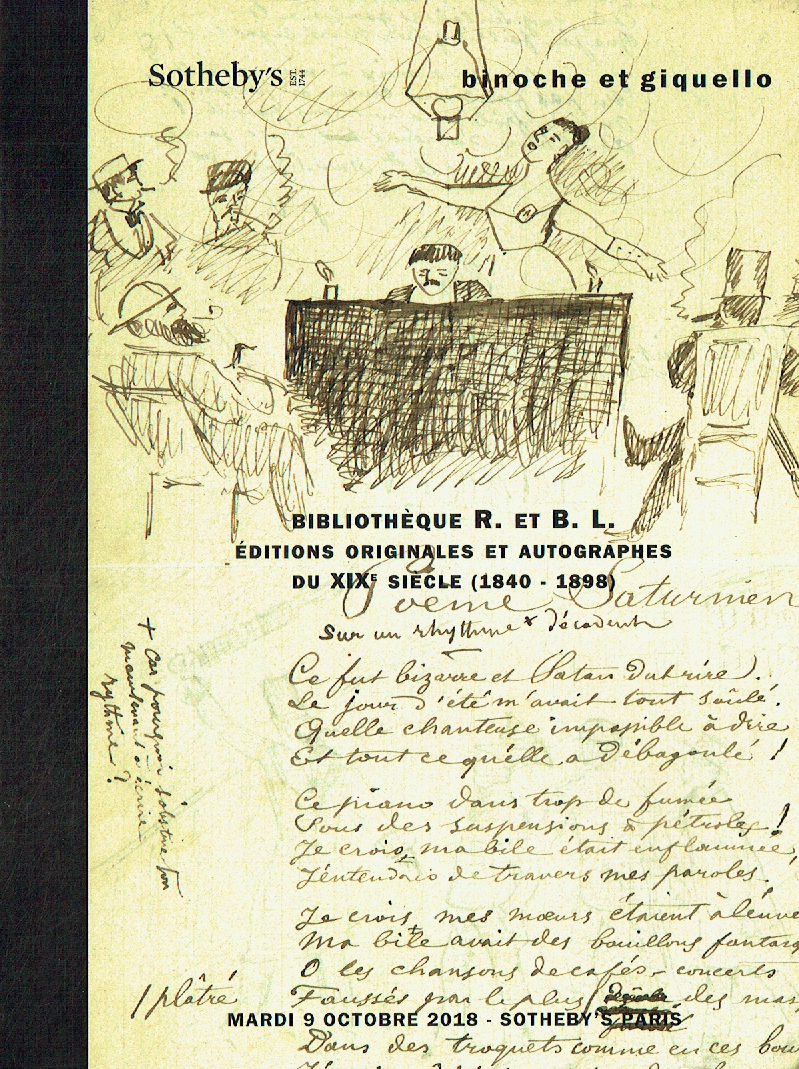 Sotheby's EST. 1744
binoche et giquello
BIBLIOTHÈQUE R. ET B. L.
ÉDITIONS ORIGINALES ET AUTOGRAPHES
DU XIXE SIÈCLE (1840 - 1898)
Poème Saturnien
Sur un rhythme + décadent
Ce fut bizarre et Satan dut rire.
Le jour d'été m'avait tout soûlé.
Quelle chanteuse impossible à dire
Et tout ce qu'elle a débagoulé !
Ce piano dans trop de fumée
Sous des suspensions à pétroles !
Je crois, ma bile était enflammée,
J'entendais de travers mes paroles.
Je crois, mes mœurs étaient à l'enve
Ma bile avait des bouillons fantasq
O les chansons de cafés-concerts
Faussés par le plus des mas
/ plâtré
+ Car pourquoi s'obstine-t-on
maintenant à écrire
rythme ?
MARDI 9 OCTOBRE 2018 - SOTHEBY'S PARIS
Dans des troquets comme en ces bou